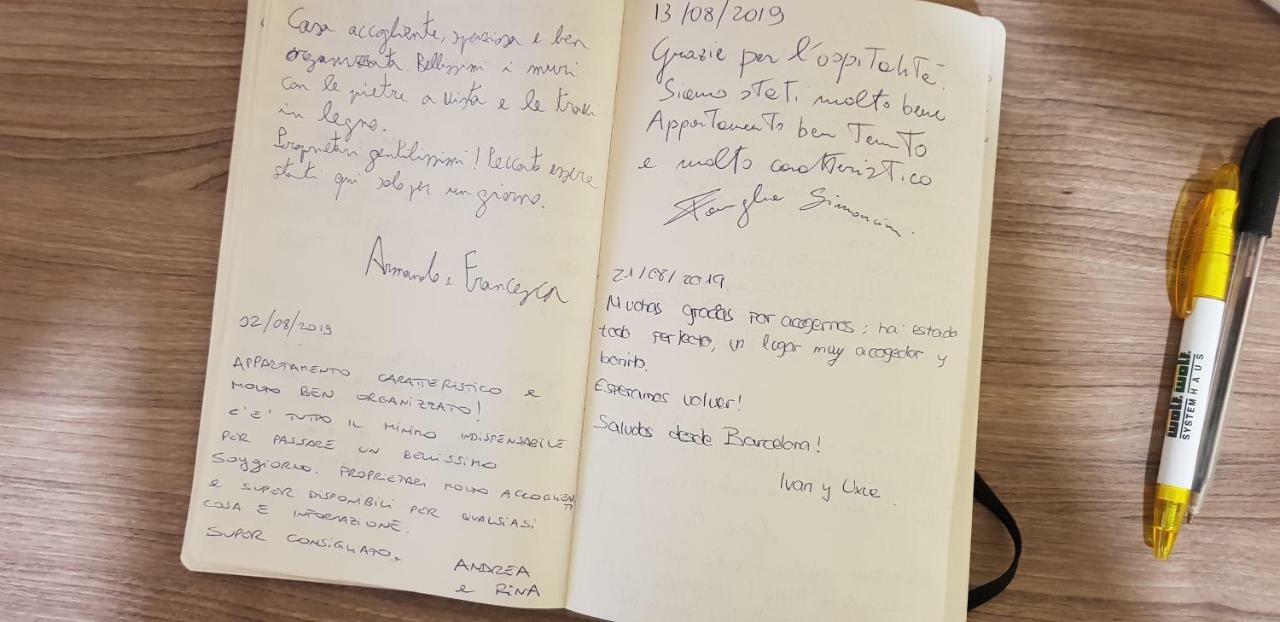 Casa accogliente, spaziosa e ben
organizzata. Bellissimi i muri
con le pietre a vista e le travi
in legno.
Proprietari gentilissimi! Peccato essere
stati qui solo per un giorno.
Armando e Francesca
02/08/2019
APPARTAMENTO CARATTERISTICO e
MOLTO BEN ORGANIZZATO!
C'E' TUTTO IL MINIMO INDISPENSABILE
PER PASSARE UN BELLISSIMO
SOGGIORNO. PROPRIETARI MOLTO ACCOGLIENTI
e SUPER DISPONIBILI PER QUALSIASI
COSA E INFORMAZIONE.
SUPER CONSIGLIATO.
ANDREA
e RINA
13/08/2019
Grazie per l'ospitalità.
Siamo stati molto bene
Appartamento ben tenuto
e molto caratteristico
Famiglia Simoncini.
21/08/2019.
Muchas gracias por acogernos; ha estado
todo perfecto, un lugar muy acogedor y
bonito.
Esperamos volver!
Saludos desde Barcelona!
Ivan y
wolf
wolf
SYSTEMHAUS